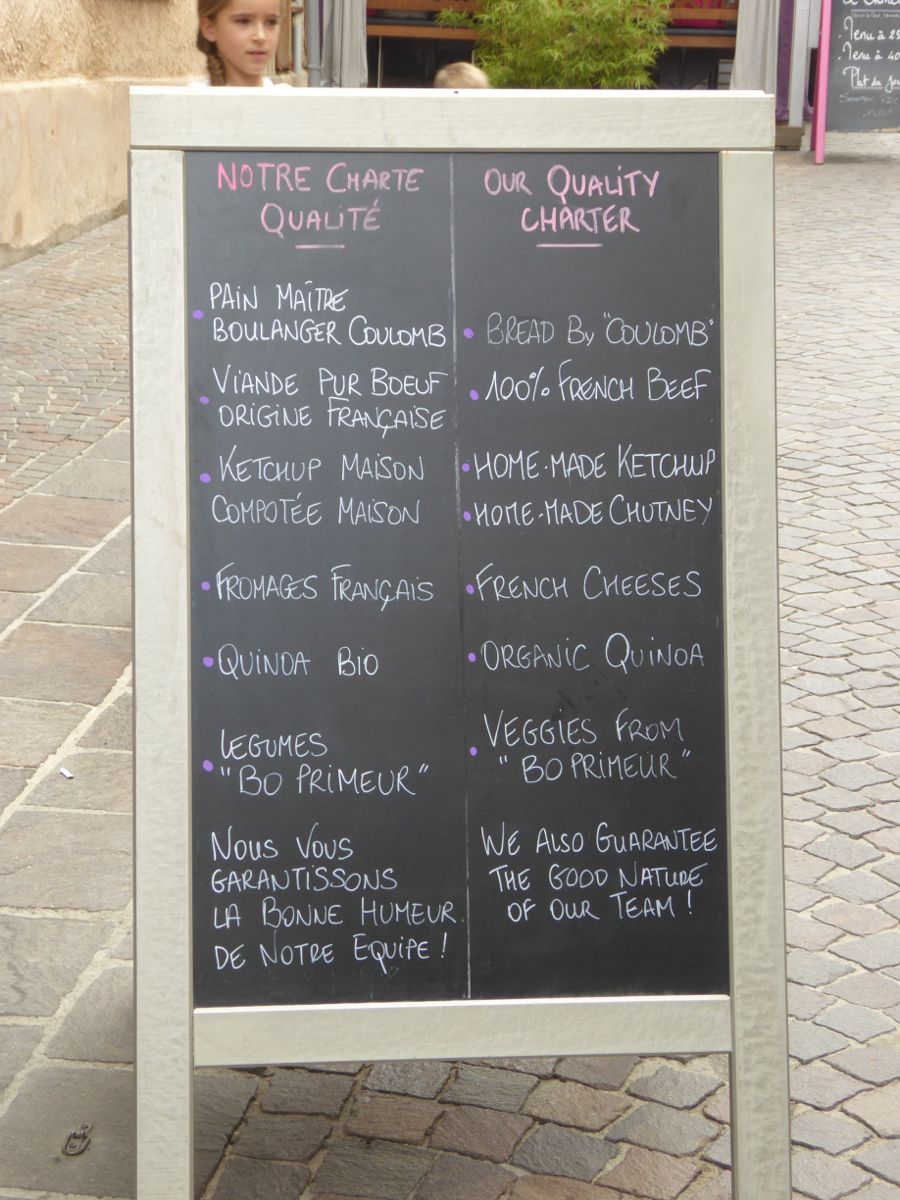 NOTRE CHARTE
QUALITÉ
PAIN MAÎTRE
BOULANGER COULOMB
VIANDE PUR BOEUF
ORIGINE FRANÇAISE
KETCHUP MAISON
COMPOTÉE MAISON
FROMAGES FRANÇAIS
QUINOA BIO
LEGUMES
"BO PRIMEUR"
NOUS VOUS
GARANTISSONS
LA BONNE HUMEUR
DE NOTRE EQUIPE !
OUR QUALITY
CHARTER
BREAD By "COULOMB"
100% FRENCH BEEF
HOME-MADE KETCHUP
HOME-MADE CHUTNEY
FRENCH CHEESES
ORGANIC QUINOA
VEGGIES FROM
"BO PRIMEUR"
WE ALSO GUARANTEE
THE GOOD NATURE
OF OUR TEAM !
Menu à
Menu à
Plat du